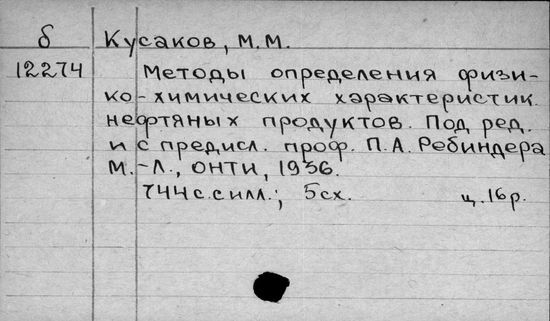 б Кусаков, М.М.
12274 Методы определения физи-
ко-химических характеристик
нефтяных продуктов. Под ред.
и с предисл. проф. П.А. Ребиндера
М.-Л., ОНТИ, 1936.
744с.силл.; 5сх. ц.16р.